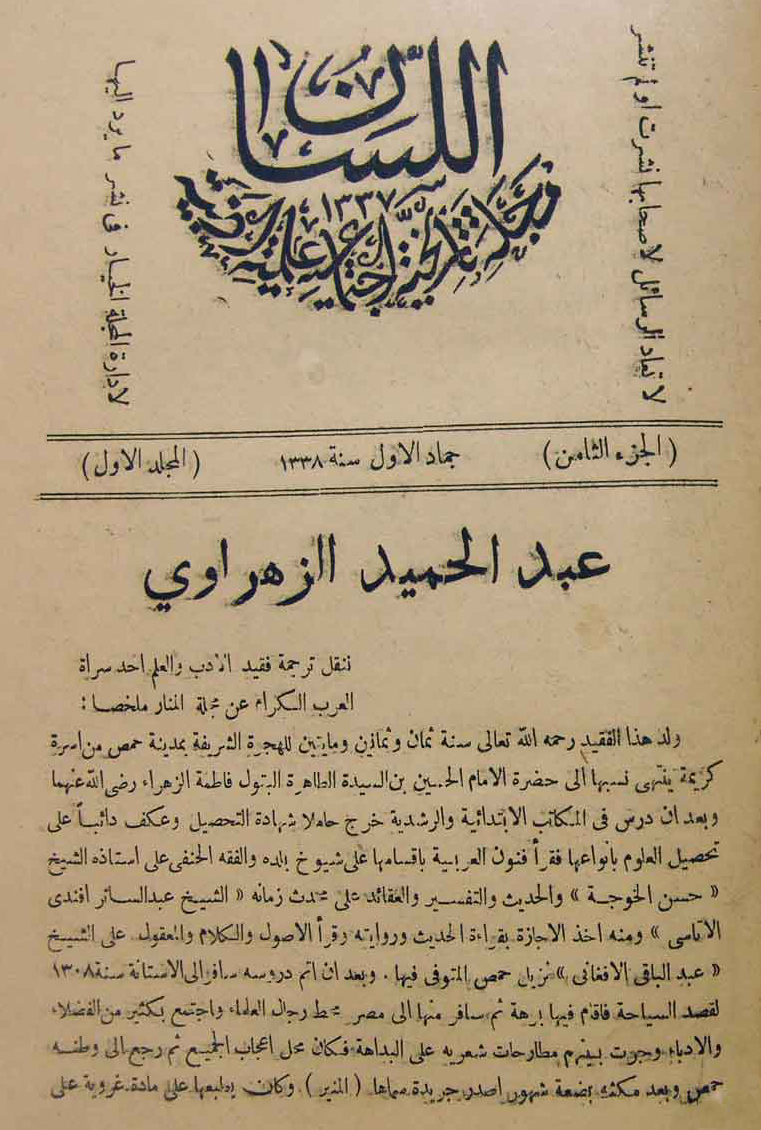 اللسان
سنة ١٣٣٧
مجلة تاريخية اجتماعية علمية ادبية
لا تعاد الرسائل لاصحابها نشرت او لم تنشر
لادارة المجلة الخيار فى نشر ما يرد اليها
(الجزء الثامن) جماد الاول سنة ١٣٣٨ (المجلد الاول)
عبد الحميد الزهراوي
ننقل ترجمة فقيد الادب والعلم احد سراة
العرب الكرام عن مجلة المنار ملخصا :
ولد هذا الفقيد رحمه الله تعالى سنة ثمان وثمانين ومايتين للهجرة الشريفة بمدينة حمص من اسرة
كريمة ينتهى نسبها الى حضرة الامام الحسين بن السيدة الطاهرة البتول فاطمة الزهراء رضى الله عنهما
وبعد ان درس فى المكاتب الابتدائية والرشدية خرج حاملا شهادة التحصيل وعكف دائباً على
تحصيل العلوم بأنواعها فقرأ فنون العربية باقسامها على شيوخ بلده والفقه الحنفى على استاذه الشيخ
« حسن الخوجة » والحديث والتفسير والعقائد على محدث زمانه « الشيخ عبدالساتر افندى
الاتاسى » ومنه اخذ الاجازة بقراءة الحديث وروايته وقرأ الاصول والكلام والمعقول على الشيخ
« عبد الباقى الافغانى » نزيل حمص المتوفى فيها . وبعد ان اتم دروسه سافر الى الاستانة سنة ١٣٠٨
لقصد السياحة فاقام فيها برهة ثم سافر منها الى مصر محط رجال العلماء واجتمع بكثير من الفضلاء
والادباء وجرت بينهم مطارحات شعريه على البداهة فكان محل اعجاب الجميع ثم رجع الى وطنه
حمص وبعد مكثه بضعة شهور اصدر جريدة سماها ( المنير ) وكان يطبعها على مادة غروية على